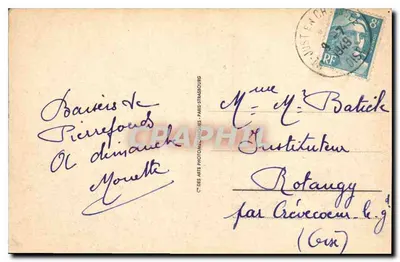 Baisers de
Pierrefonds
A dimanche
Monette
Mme Mr Batick
Instituteur
Rotangy
par Crèvecoeur le gd
(Oise)
ST JUST EN CH
8 -7
1949
OISE
8F
RF
CIE DES ARTS PHOTOMÉCANIQUES - PARIS-STRASBOURG
CPAPHIL